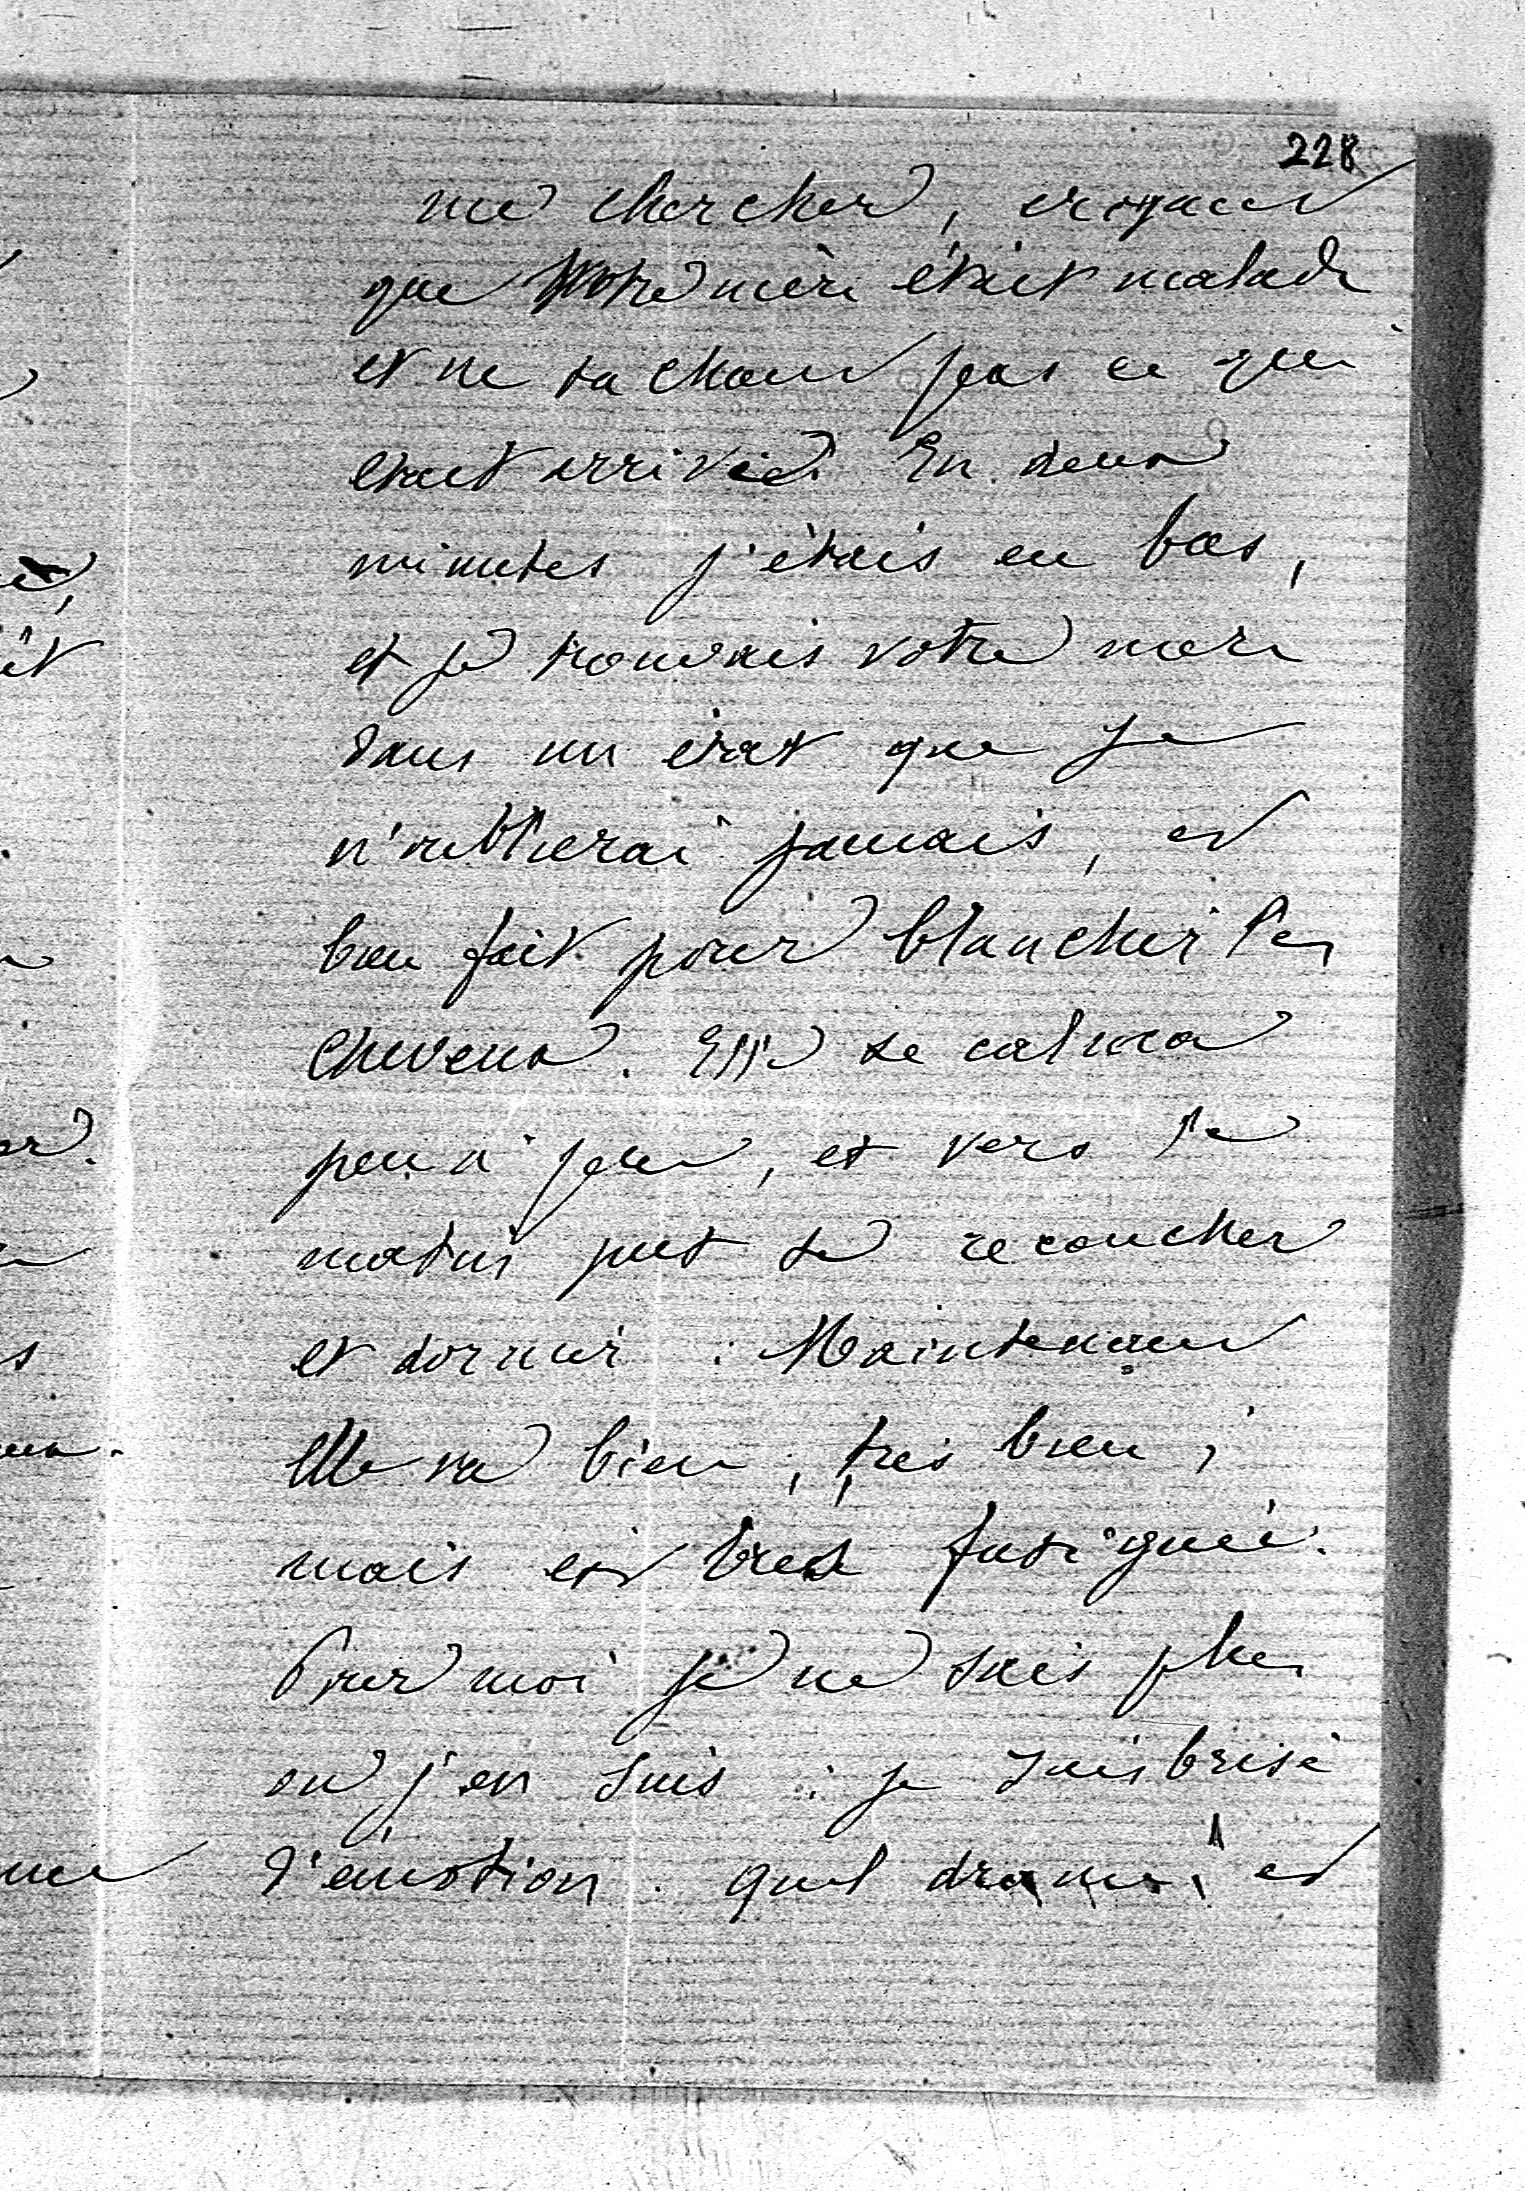 228
me chercher, croyant
que votre mère était malade
et ne sachant pas ce qui
était arrivé. En deux
minutes j'étais en bas,
et je trouvais votre mère
dans un état que je
n'oublierai jamais, et
bien fait pour blanchir les
cheveux. Elle se calma
peu à peu, et vers le
matin put se recoucher
et dormir. Maintenant
elle va bien, très bien,
mais est très fatiguée.
Pour moi je ne sais plus
où j'en suis : je suis brisé
d'émotion. quel drame, et